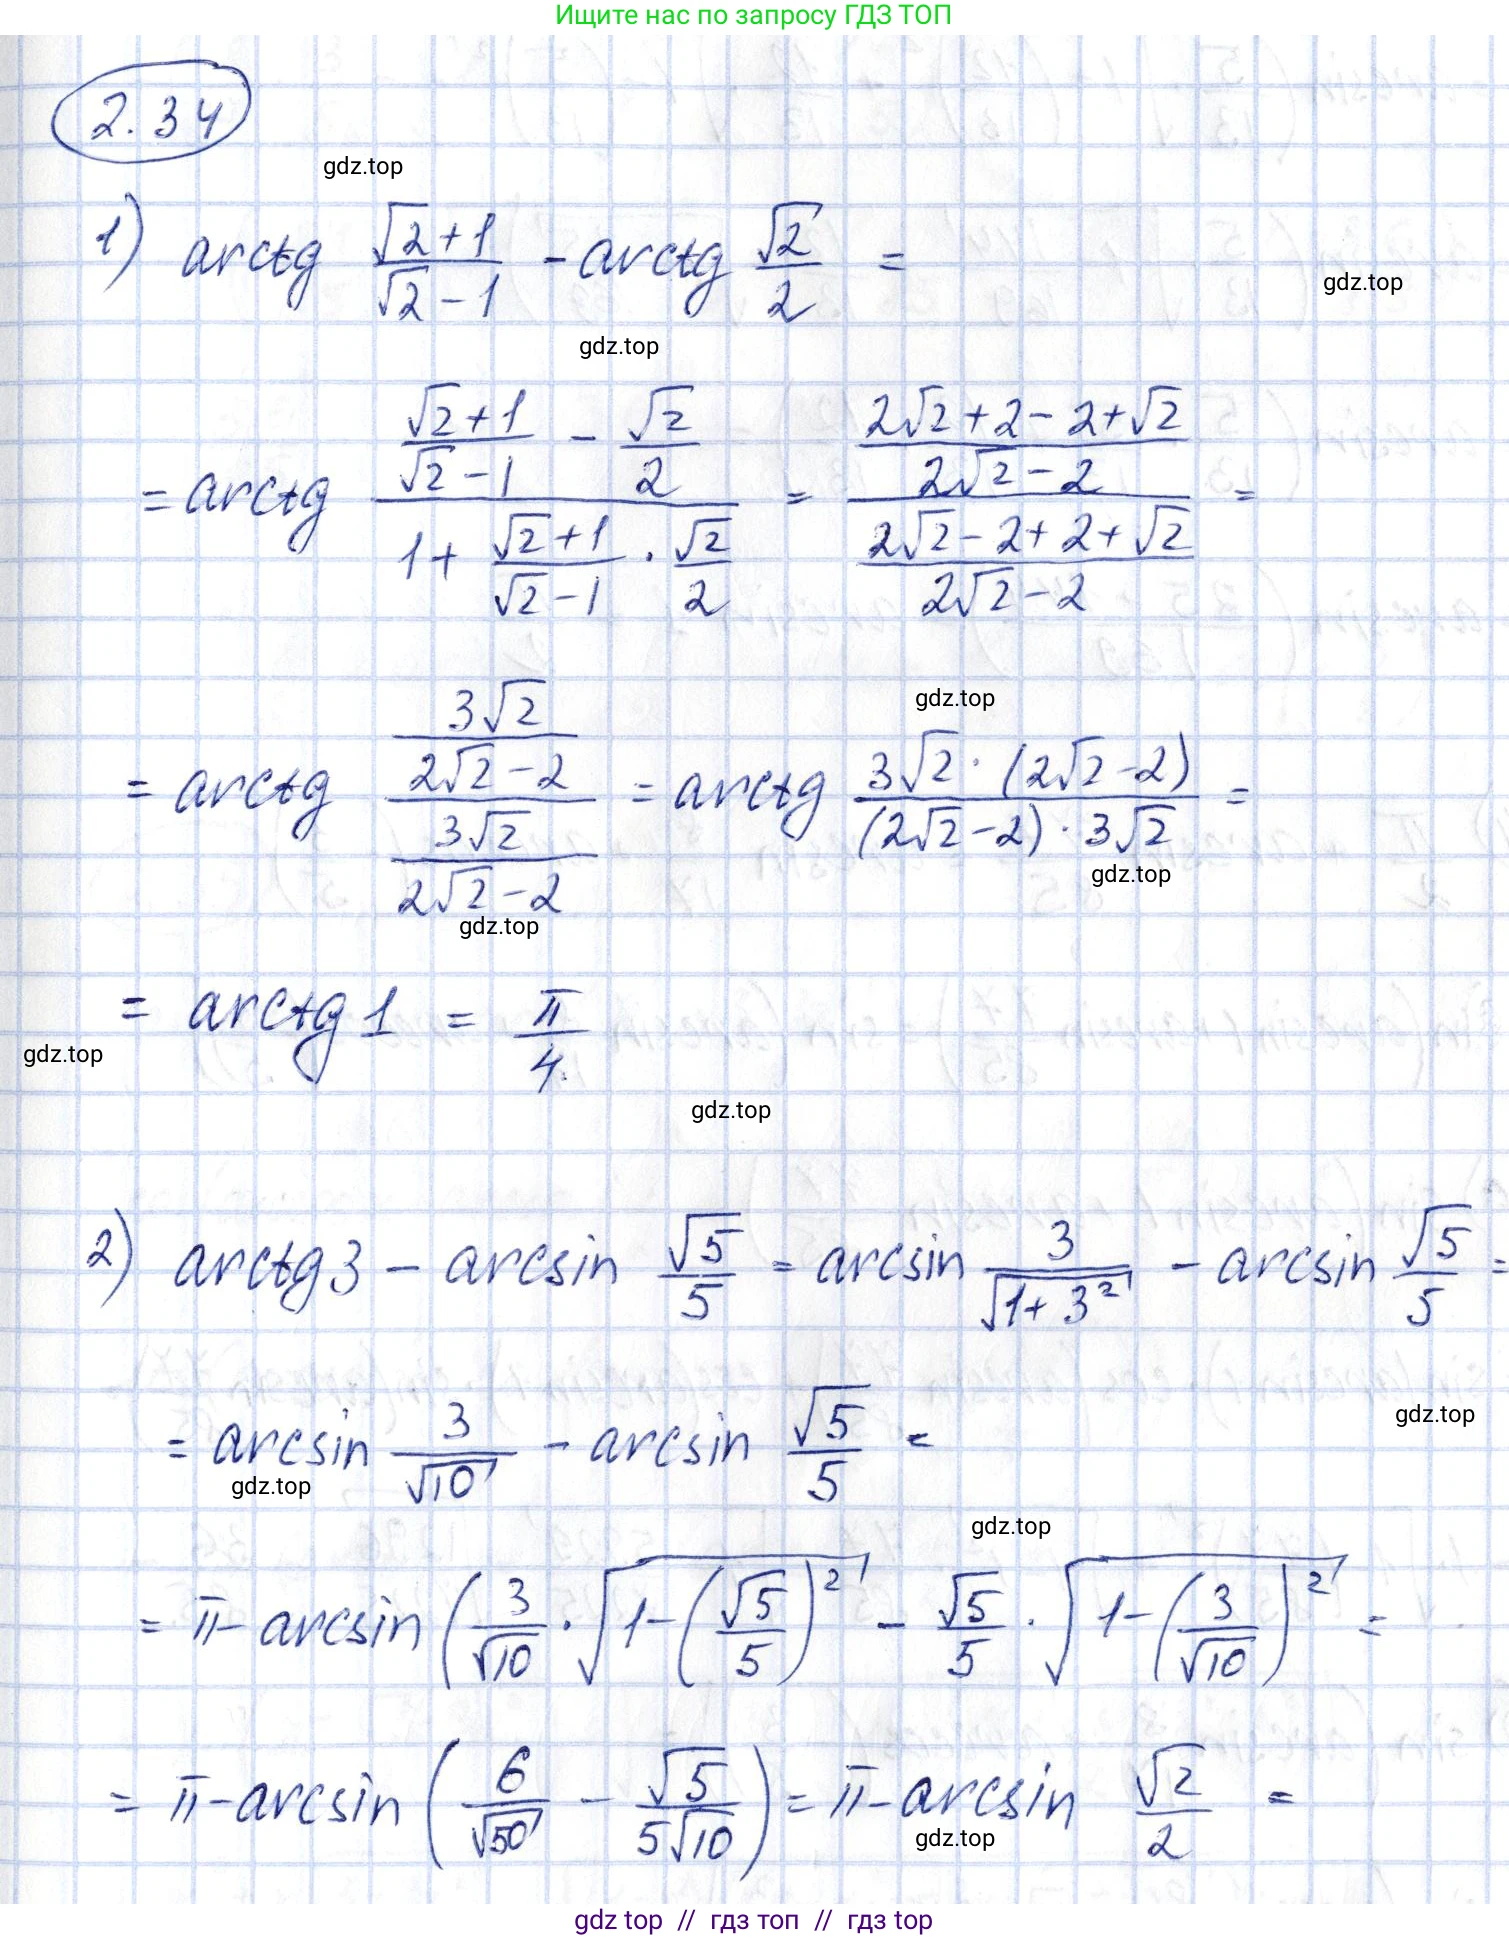 Ищите нас по запросу ГДЗ ТОП
2.34
gdz.top
1) arctg (√2+1)/(√2-1) - arctg √2/2 =
gdz.top
gdz.top
= arctg ((√2+1)/(√2-1) - √2/2)/(1 + (√2+1)/(√2-1) · √2/2) = ((2√2+2-2+√2)/(2√2-2))/((2√2-2+2+√2)/(2√2-2)) =
gdz.top
= arctg (3√2/(2√2-2))/(3√2/(2√2-2)) = arctg (3√2·(2√2-2))/((2√2-2)·3√2) =
gdz.top
gdz.top
= arctg 1 = π/4.
gdz.top
gdz.top
2) arctg 3 - arcsin √5/5 = arcsin 3/√(1+3²) - arcsin √5/5 =
gdz.top
= arcsin 3/√10 - arcsin √5/5 =
gdz.top
gdz.top
= π - arcsin (3/√10 · √(1-(√5/5)²) - √5/5 · √(1-(3/√10)²) =
= π - arcsin (6/√50 - √5/(5√10)) = π - arcsin √2/2 =
gdz.top
gdz top // гдз топ // гдз top